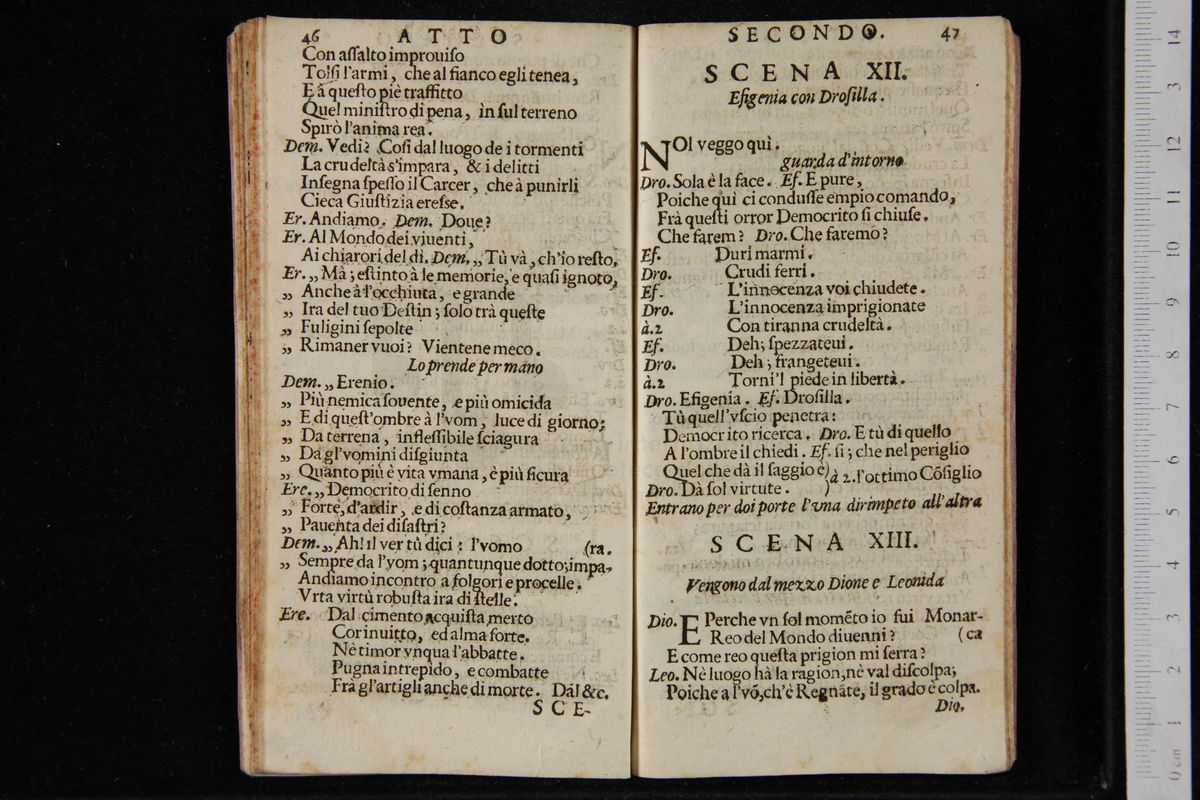 46 ATTO
Con aſſalto improuiſo
Tolſi l'armi, che al fianco egli tenea,
E à queſto piè traffitto
Quel miniſtro di pena, in ſul terreno
Spirò l'anima rea.
Dem. Vedi? Coſi dal luogo de i tormenti
La crudeltà s'impara, & i delitti
Inſegna ſpeſſo il Carcer, che à punirli
Cieca Giuſtizia ereſse.
Er. Andiamo. Dem. Doue?
Er. Al Mondo dei viuenti,
Ai chiarori del dì. Dem. „ Tù và, ch'io reſto,
Er. „ Mà; eſtinto à le memorie, e quaſi ignoto,
„ Anche à l'occhiuta, e grande
„ Ira del tuo Deſtin; ſolo trà queſte
„ Fuligini ſepolte
„ Rimaner vuoi? Vientene meco.
Lo prende per mano
Dem. „ Erenio.
„ Più nemica ſouente, e più omicida
„ E di queſt'ombre à l'vom, luce di giorno;
„ Da terrena, infleſſibile ſciagura
„ Da gl'vomini diſgiunta
„ Quanto più è vita vmana, è più ſicura
Ere. „ Democrito di ſenno
„ Forte, d'ardir, e di coſtanza armato,
„ Pauenta dei diſaſtri?
Dem. „ Ah! il ver tù dici: l'vomo (ra.
„ Sempre da l'vom; quantunque dotto; impa-
Andiamo incontro a folgori e procelle.
Vrta virtù robuſta ira di ſtelle.
Ere. Dal cimento acquiſta merto
Cor inuitto, ed alma forte.
Nè timor vnqua l'abbatte.
Pugna intrepido, e combatte
Frà gl'artigli anche di morte. Dal &c.
SCE-
SECONDO. 47
SCENA XII.
Efigenia con Droſilla.
NOl veggo quì.
guarda d'intorno
Dro. Sola è la face. Ef. E pure,
Poiche quì ci conduſſe empio comando,
Frà queſti orror Democrito ſi chiuſe.
Che farem? Dro. Che faremo?
Ef. Duri marmi.
Dro. Crudi ferri.
Ef. L'innocenza voi chiudete.
Dro. L'innocenza imprigionate
à.2 Con tiranna crudeltà.
Ef. Deh; ſpezzateui.
Dro. Deh; frangeteui.
à.2 Torni'l piede in libertà.
Dro. Efigenia. Ef. Droſilla.
Tù quell'vſcio penetra:
Democrito ricerca. Dro. E tù di quello
A l'ombre il chiedi. Ef. ſi; che nel periglio
Quel che dà il ſaggio è) à 2. l'ottimo Cõſiglio
Dro. Dà ſol virtute. )
Entrano per doi porte l'vna dirimpeto all'altra
SCENA XIII.
Vengono dal mezzo Dione e Leonida
Dio. E Perche vn ſol momẽto io fui Monar-
Reo del Mondo diuenni? (ca
E come reo queſta prigion mi ſerra?
Leo. Nè luogo hà la ragion, nè val diſcolpa;
Poiche a l'võ, ch'è Regnãte, il grado è colpa.
Dio.